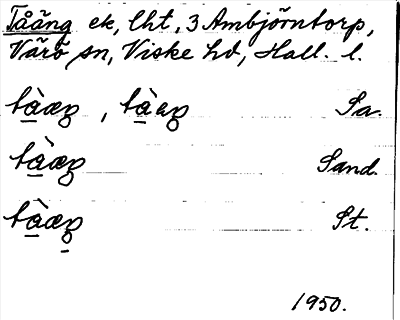 Tåäng ek, lht, 3 Ambjörntorp,
Värö sn, Viske hd, Hall. l.
tàæŋ, tàaŋ Sa.
tàæŋ Sand.
tàæŋ St.
1950.